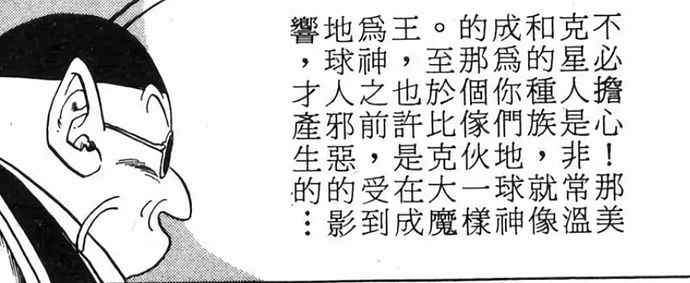 不必擔心！那美
克星人是非常溫
和的種族，就像
成爲你們地球神
的那個傢伙一樣
。至於比克大魔
王，也許是在成
爲神之前，受到
地球人邪惡的影
響，才產生的…